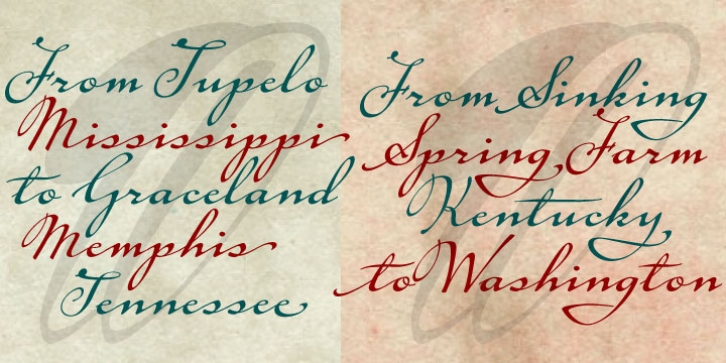 From Tupelo
Mississippi
to Graceland
Memphis
Tennessee
From Sinking
Spring Farm
Kentucky
to Washington